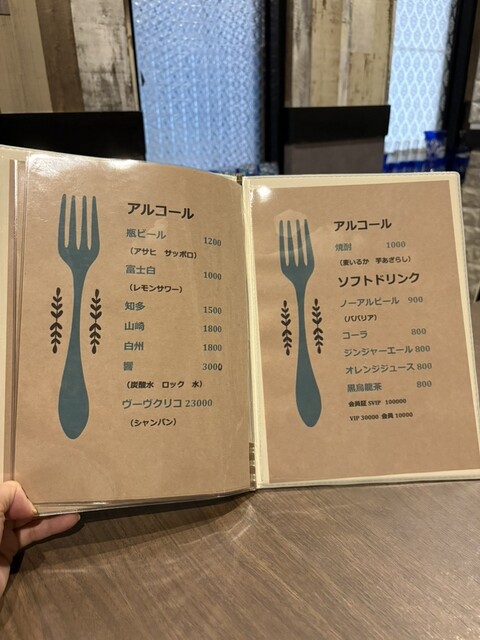 アルコール
瓶ビール 1200
(アサヒ サッポロ)
富士白 1000
(レモンサワー)
知多 1500
山崎 1800
白州 1800
響 3000
(炭酸水 ロック 水)
ヴーヴクリコ 23000
(シャンパン)
アルコール
焼酎 1000
(麦いるか 芋あざらし)
ソフトドリンク
ノーアルビール 900
(ババリア)
コーラ 800
ジンジャーエール 800
オレンジジュース 800
黒烏龍茶 800
会員証 SVIP 100000
VIP 30000 会員 10000